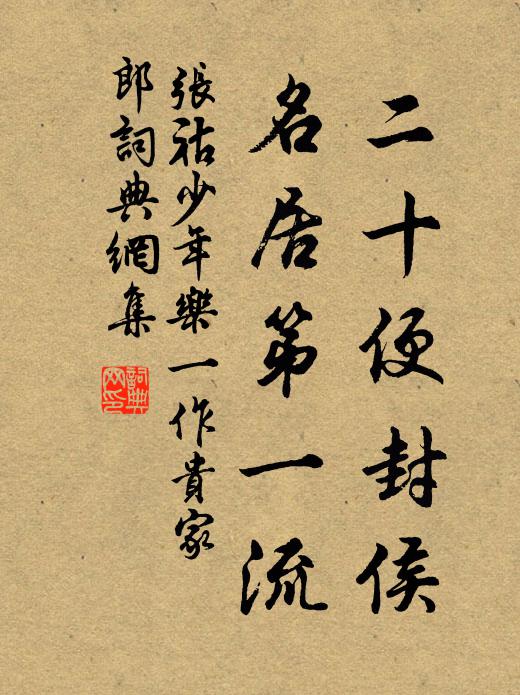 二十便封侯
名居第一流
張祜少年樂一作貴家
郎詞典網集
詞典網印